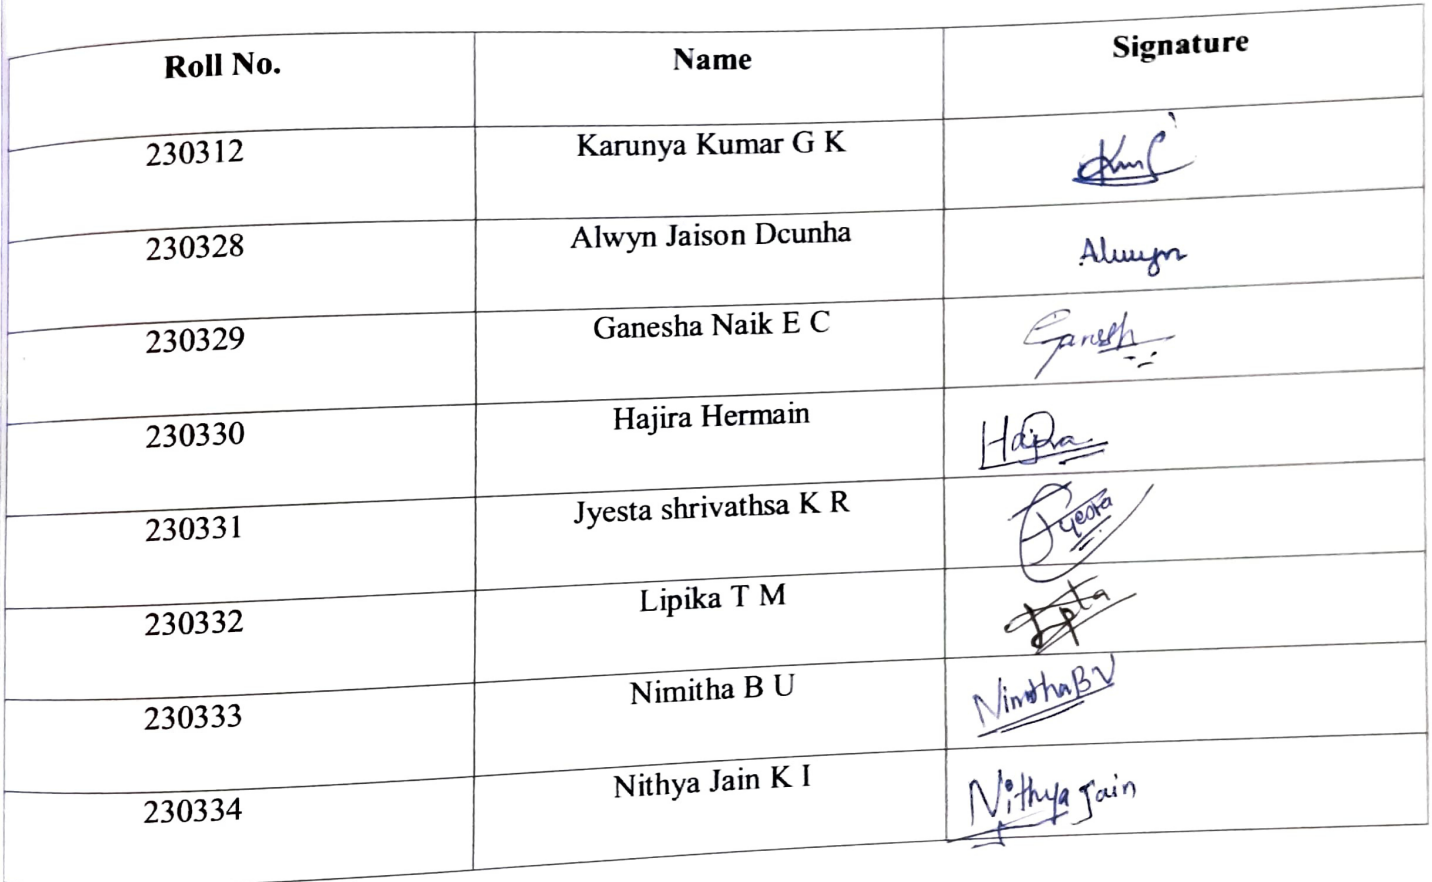 Roll No. Name Signature
230312 Karunya Kumar G K
230328 Alwyn Jaison Dcunha Alwyn
230329 Ganesha Naik E C Ganesh
230330 Hajira Hermain Hajira
230331 Jyesta shrivathsa K R Jyesta
230332 Lipika T M
230333 Nimitha B U Nimitha B U
230334 Nithya Jain K I Nithya Jain